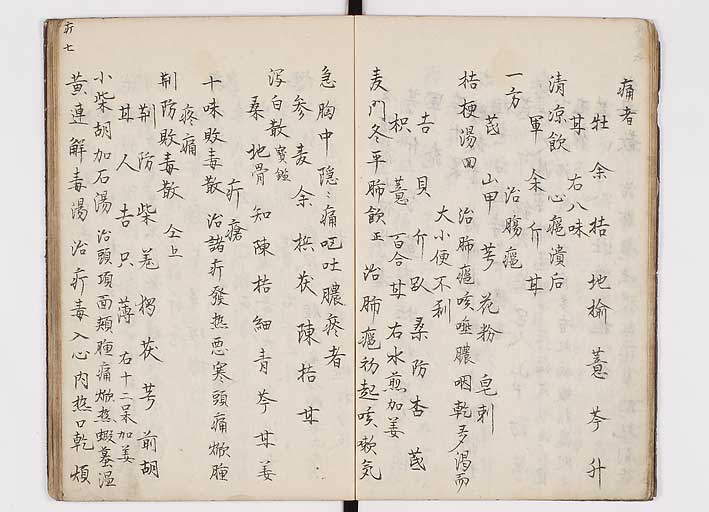 痛者
牡 余 桔 地榆 薏 芩 升
甘 右八味
清凉飲 心癰潰后
軍 余 介 甘
一方 治腸癰
芪 山甲 芎 花粉 皂刺
桔梗湯四 治肺癰咳唾膿咽乾多渴而
大小便不利
吉 貝 介 趴 桑 防 杏 芪
枳 薏 百合 甘 右水煎加姜
麦門冬平肺飲正 治肺癰初起咳嗽気
急胸中隐々痛呕吐膿痰者
参 麦 余 梹 茯 陳 桔 甘
泻白散宝鑑
桑 地骨 知 陳 桔 細 青 芩 甘 姜
疔瘡
十味敗毒散 治諸疔發热悪寒頭痛焮腫
疼痛
荊防敗毒散 仝上
荊 防 柴 羌 枴 茯 芎 前胡
甘 人 吉 只 薄 右十二味加姜
小柴胡加石湯 治頭項面頬腫痛焮热蝦蟇温
黄連解毒湯 治疔毒入心内热口乾煩
疔 七